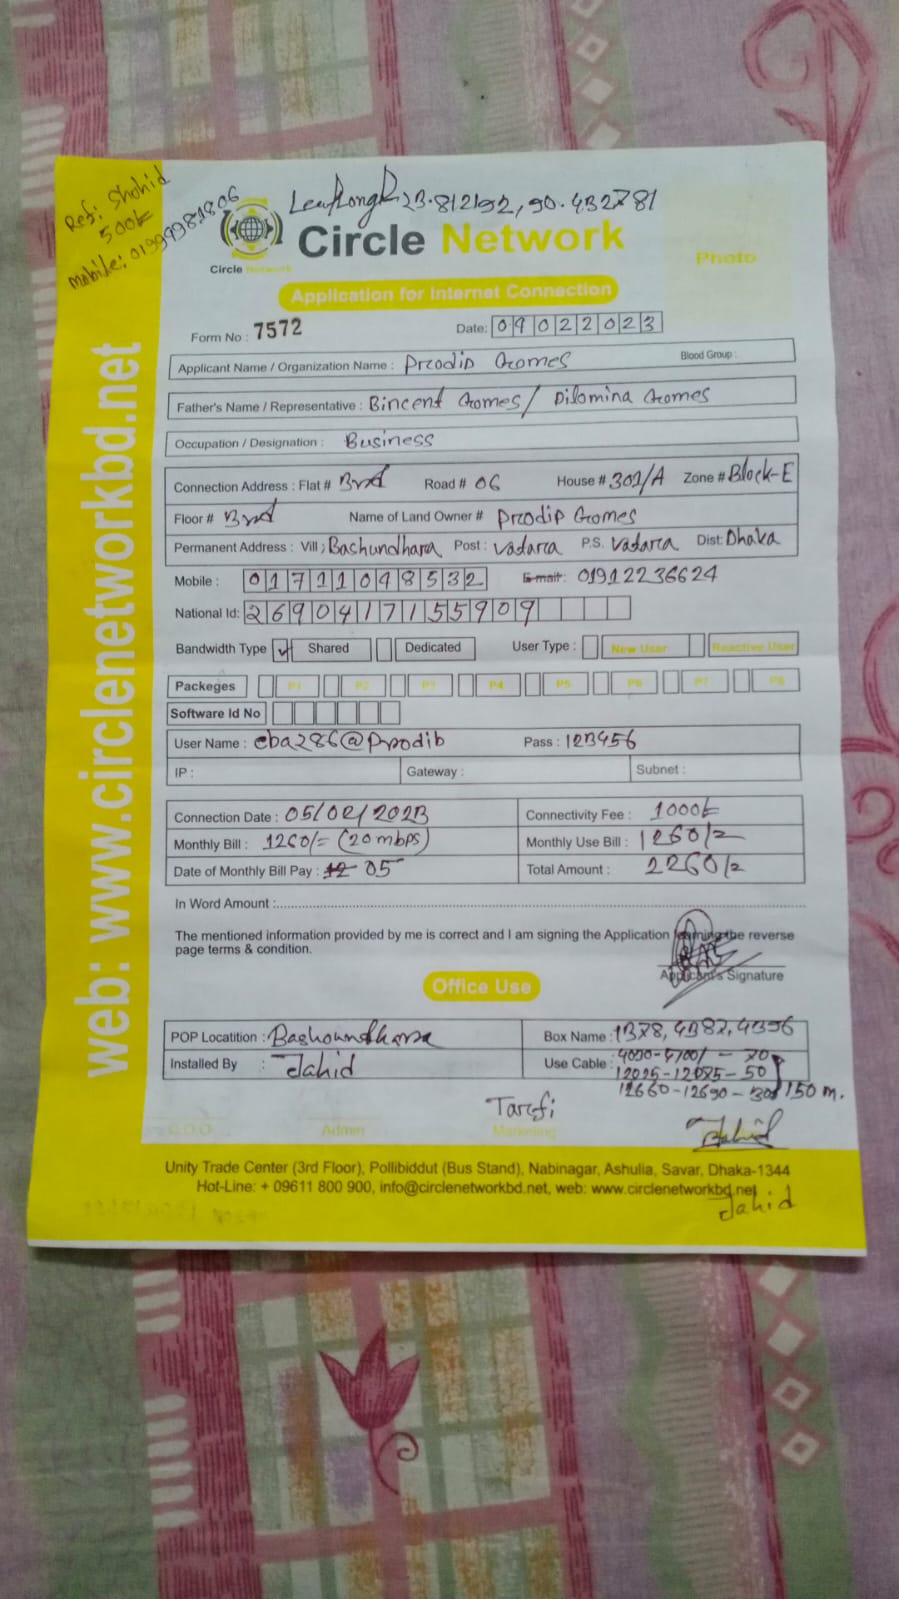 Ref: Shohid
500/=
mobile: 01999981806
23.812192, 90.432781
Circle Network
Circle Network
Photo
Application for Internet Connection
Form No : 7572
Date: 09022023
Applicant Name / Organization Name : Prodip Gomes Blood Group :
Father's Name / Representative : Bincent Gomes / Dilomina Gomes
Occupation / Designation : Business
Connection Address : Flat # 3rd Road # 06 House # 301/A Zone # Block-E
Floor # 3rd Name of Land Owner # Prodip Gomes
Permanent Address : Vill; Bachundhara Post : Vadara P.S. Vadara Dist: Dhaka
Mobile : 01711098532 E-mail: 01912236624
National Id: 2690417155909
Bandwidth Type Shared Dedicated User Type : New User Reactive User
Packeges P1 P2 P3 P4 P5 P6 P7 P8
Software Id No
User Name : cba286@Prodib Pass : 123456
IP : Gateway : Subnet :
Connection Date : 05/02/2023 Connectivity Fee : 1000/=
Monthly Bill : 1260/= (20 mbps) Monthly Use Bill : 1260/=
Date of Monthly Bill Pay : 12 05 Total Amount : 2260/=
In Word Amount :
The mentioned information provided by me is correct and I am signing the Application the reverse
page terms & condition.
Applicant's Signature
Office Use
POP Locatition : Bashoundhara Box Name : 1378, 4387, 4356
Installed By : Jahid Use Cable : 4030-4100/ - 70
12025-12075-50
12660-12690-30 150 m.
Tarefi
C.O.O Admin Marketing Jahid
Unity Trade Center (3rd Floor), Pollibiddut (Bus Stand), Nabinagar, Ashulia, Savar, Dhaka-1344
Hot-Line: + 09611 800 900, info@circlenetworkbd.net, web: www.circlenetworkbd.net
Jahid
web: www.circlenetworkbd.net